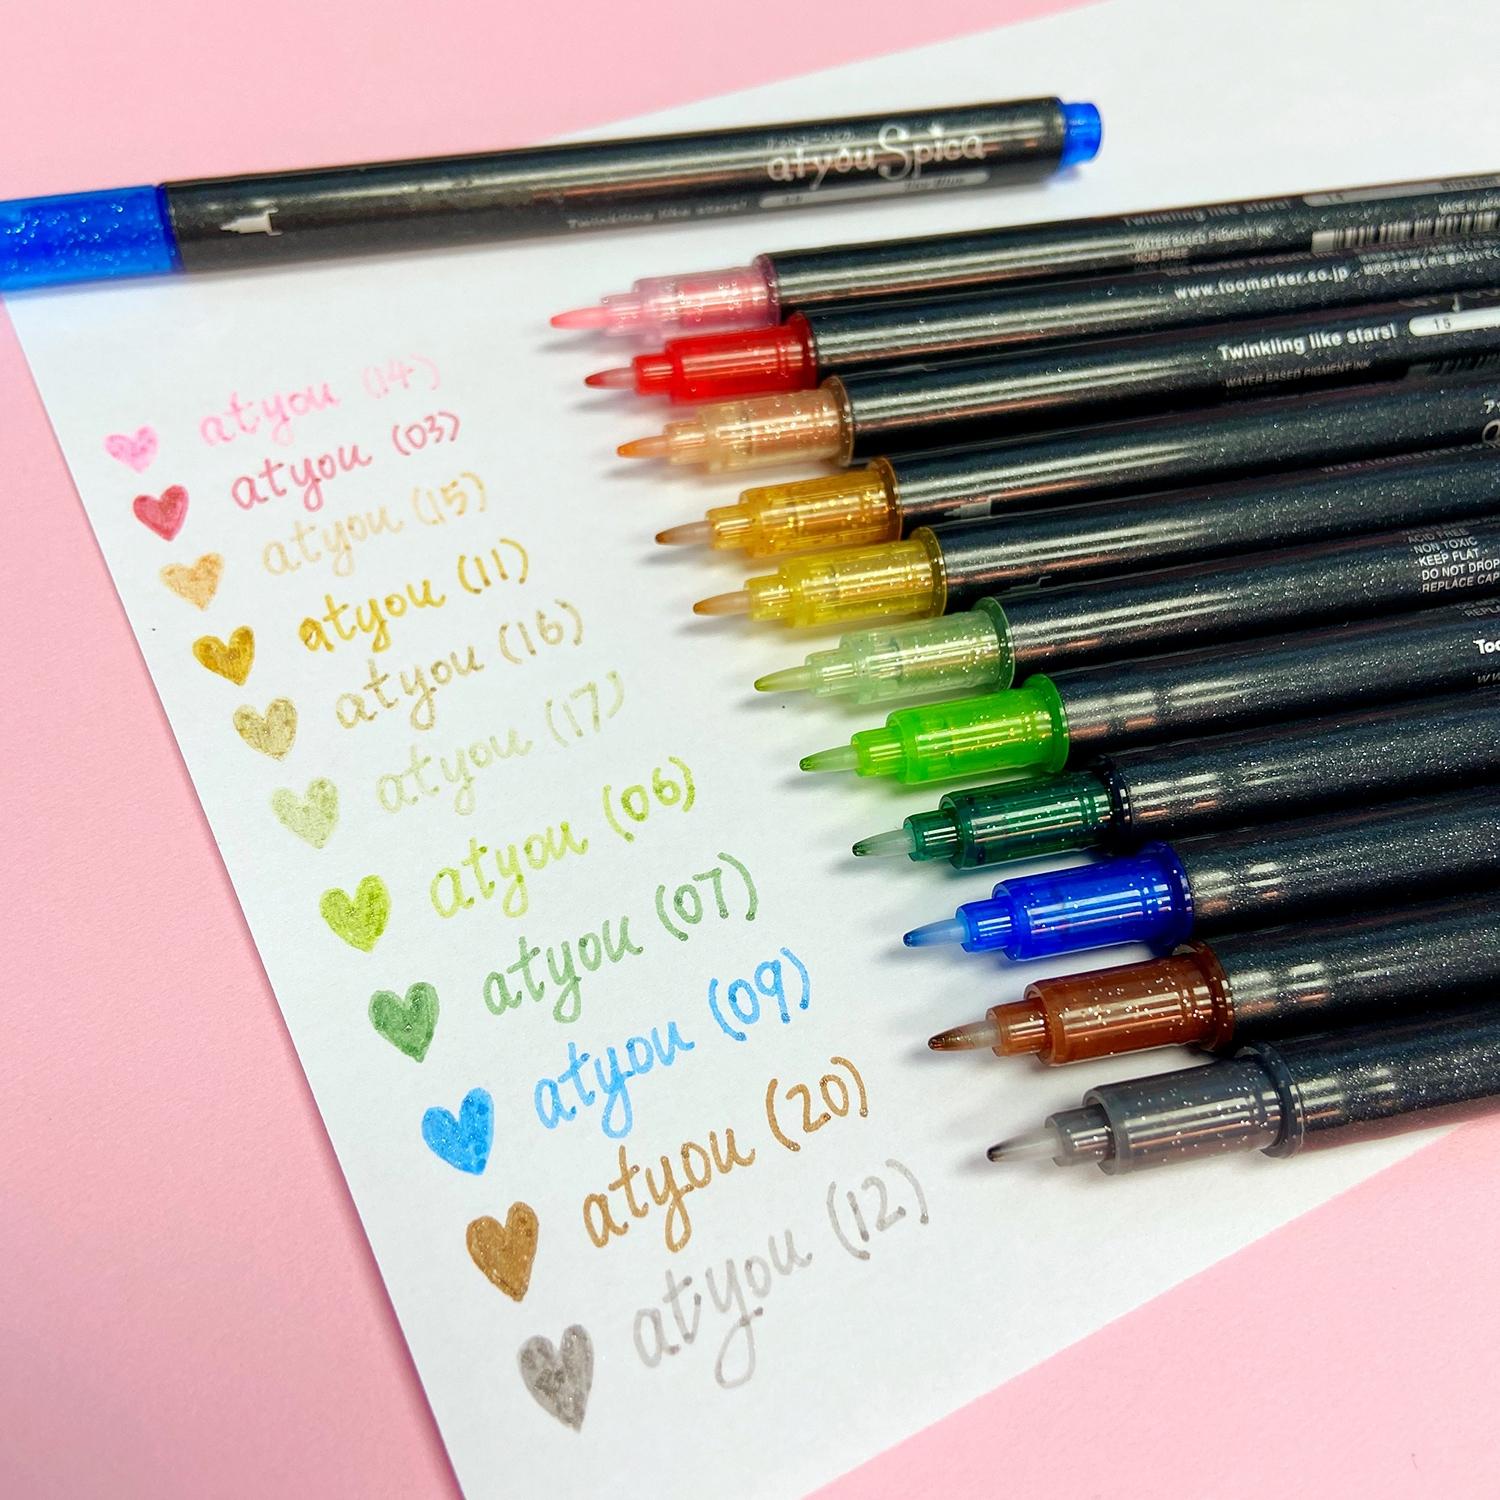 atyouSpica
Twinkling like stars!
Twinkling like stars!
WATER BASED PIGMENT INK
ACID FREE
www.toomarker.co.jp
Twinkling like stars! 15
WATER BASED PIGMENT INK
ACID FREE
NON TOXIC
KEEP FLAT
DO NOT DROP
REPLACE CAP
Too
atyou (14)
atyou (03)
atyou (15)
atyou (11)
atyou (16)
atyou (17)
atyou (06)
atyou (07)
atyou (09)
atyou (20)
atyou (12)